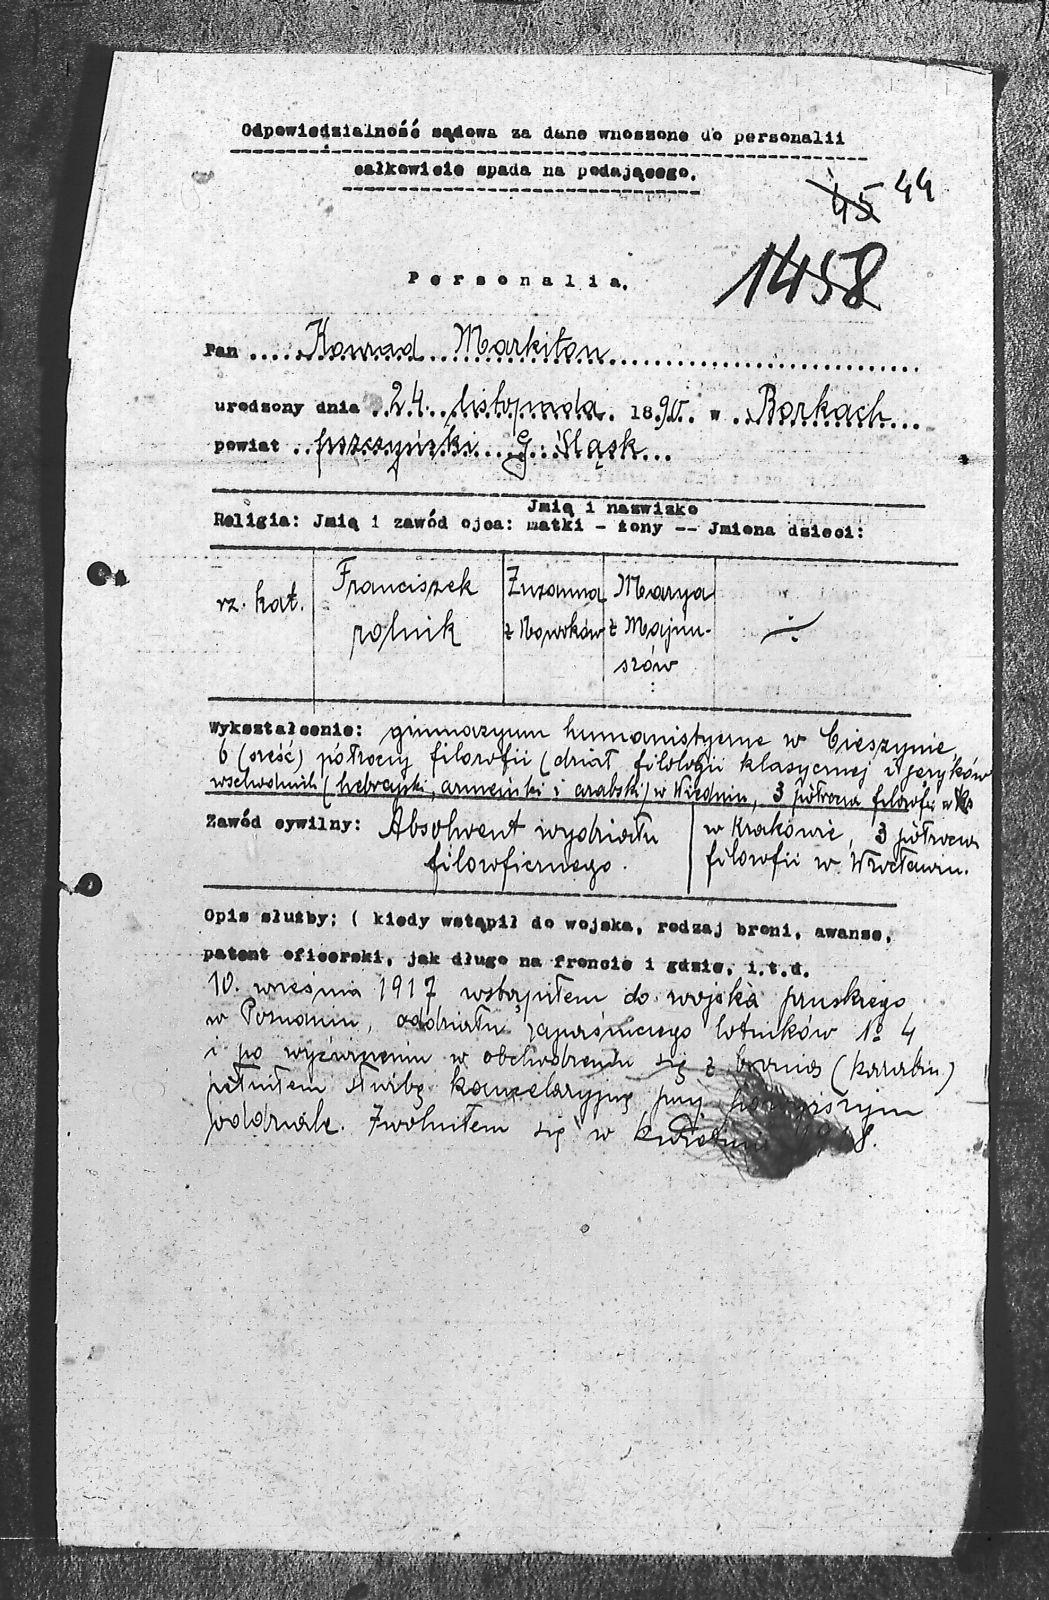 Odpowiedzialność sądowa za dane wnoszone do personalii
całkowicie spada na podającego.
45 44
1458
Personalia.
Pan Konrad Markiton
urodzony dnia 24 listopada 1890 w Borkach
powiat pszczyński G. Śląsk
Jmię i nazwisko
Religia: Jmię i zawód ojca: matki - żony -- Jmiona dzieci:
rz. kat. Franciszek Zuzanna Marya
rolnik z Nowoków z Majnu-
szów
Wykształcenie: gimnazyum humanistyczne w Cieszynie
6 (sześć) półroczy filozofii (dział filologii klasycznej i języków
wschodnich (hebrajski, armeński i arabski) w Wiedniu, 3 półrocza filozofii w
Zawód cywilny: Absolwent wydziału w Krakowie, 3 półrocza
filozoficznego. filozofii w Wrocławiu.
Opis służby: ( kiedy wstąpił do wojska, rodzaj broni, awanse,
patent oficerski, jak długo na froncie i gdzie, i.t.d.
10. września 1917 wstąpiłem do wojska pruskiego
w Poznaniu, oddziału zapaśniczego lotników No 4
i po wyćwiczeniu w obchodzeniu się z bronią (karabin)
pełniłem służbę kancelaryjną przy
oddziale. Zwolniłem się w kwietniu 1918.